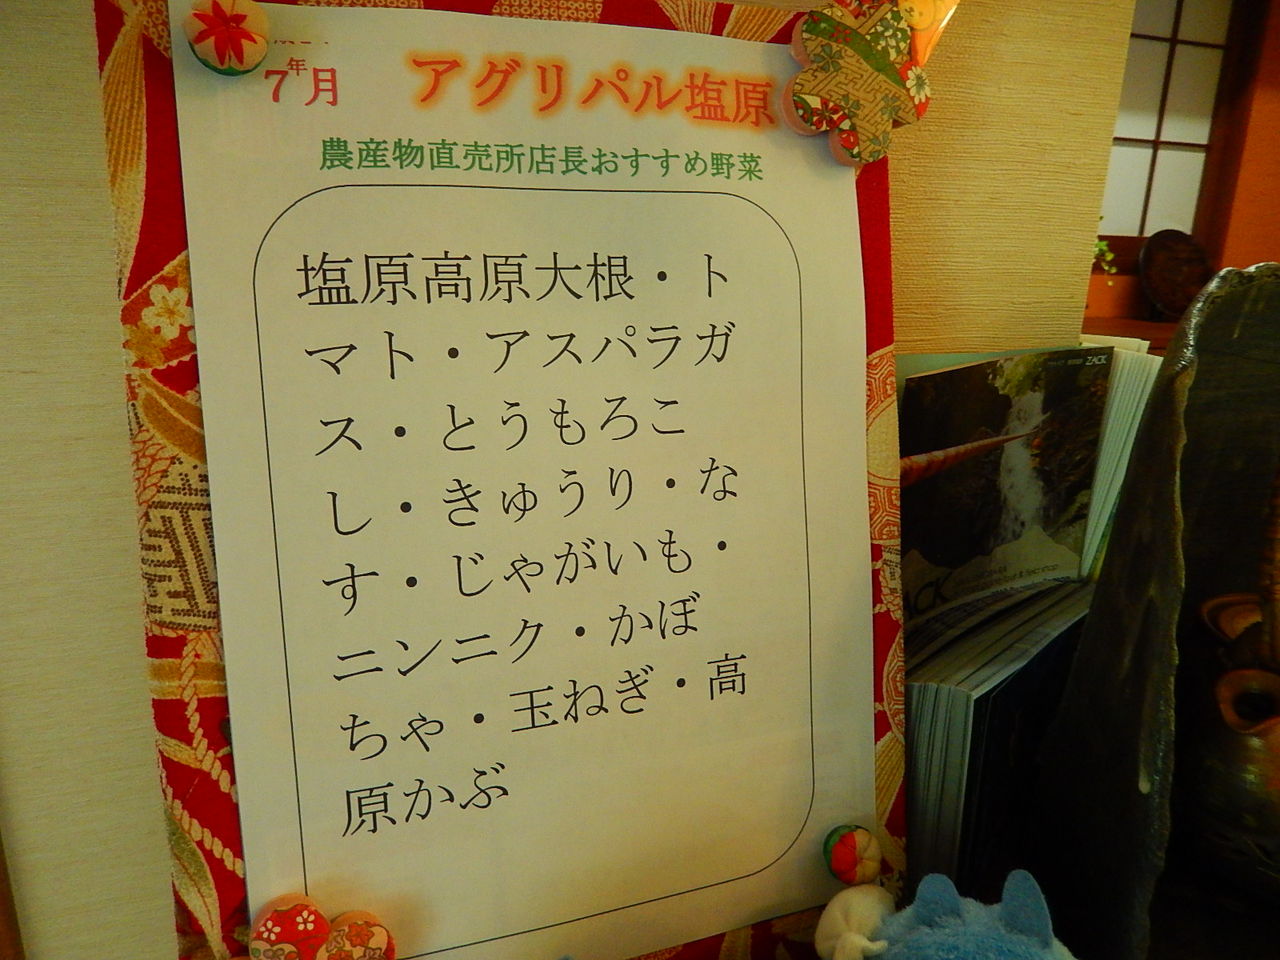 7年月
アグリパル塩原
農産物直売所店長おすすめ野菜
塩原高原大根・ト
マト・アスパラガ
ス・とうもろこ
し・きゅうり・な
す・じゃがいも・
ニンニク・かぼ
ちゃ・玉ねぎ・高
原かぶ
ZACK